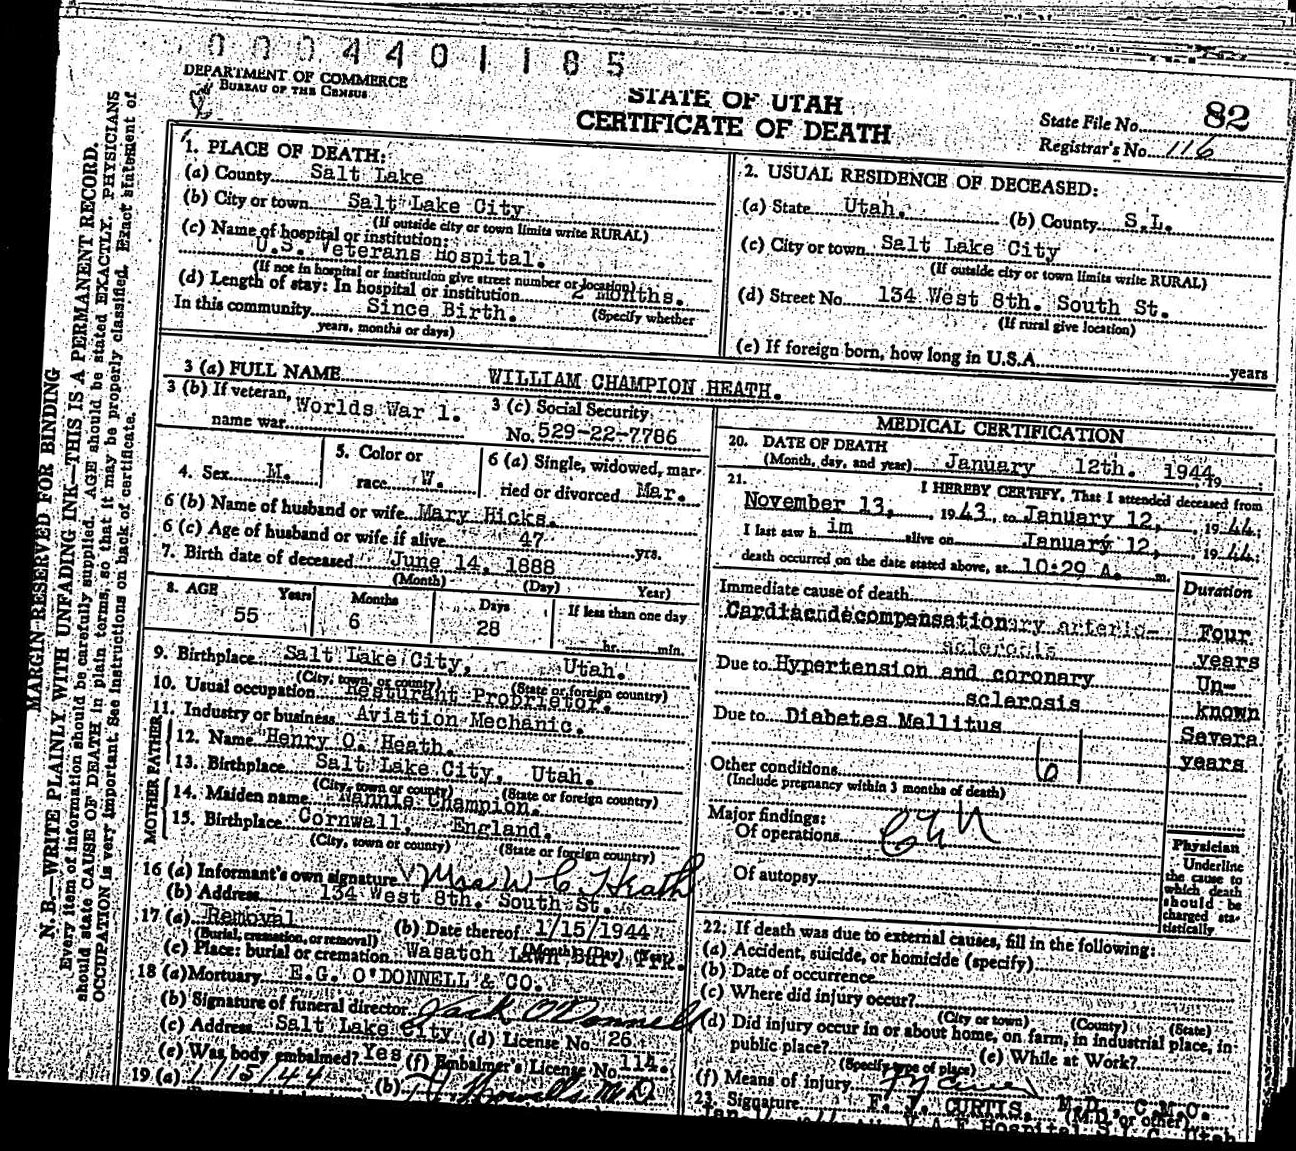 0004401185
DEPARTMENT OF COMMERCE
BUREAU OF THE CENSUS
STATE OF UTAH
CERTIFICATE OF DEATH
State File No. 82
Registrar's No. 116
1. PLACE OF DEATH:
(a) County Salt Lake
(b) City or town Salt Lake City
(If outside city or town limits write RURAL)
(c) Name of hospital or institution:
U.S. Veterans Hospital.
(If not in hospital or institution give street number or location)
(d) Length of stay: In hospital or institution 2 Months.
In this community Since Birth. (Specify whether
years, months or days)
2. USUAL RESIDENCE OF DECEASED:
(a) State Utah. (b) County S.L.
(c) City or town Salt Lake City
(If outside city or town limits write RURAL)
(d) Street No. 134 West 8th. South St.
(If rural give location)
(e) If foreign born, how long in U.S.A. years
3 (a) FULL NAME WILLIAM CHAMPION HEATH.
3 (b) If veteran, name war Worlds War 1.
3 (c) Social Security No. 529-22-7786
4. Sex M.
5. Color or race W.
6 (a) Single, widowed, married or divorced Mar.
6 (b) Name of husband or wife Mary Hicks.
6 (c) Age of husband or wife if alive 47 yrs.
7. Birth date of deceased June 14, 1888
(Month) (Day) Year)
8. AGE Years Months Days If less than one day
55 6 28 hr. min.
9. Birthplace Salt Lake City, Utah.
(City, town, or county) (State or foreign country)
10. Usual occupation Resturant Proprietor.
11. Industry or business Aviation Mechanic.
FATHER
12. Name Henry O. Heath.
13. Birthplace Salt Lake City, Utah.
(City, town or county) (State or foreign country)
MOTHER
14. Maiden name Nannie Champion.
15. Birthplace Cornwall, England.
(City, town or county) (State or foreign country)
16 (a) Informant's own signature Mrs W C Heath
(b) Address 134 West 8th. South St.
17 (a) Removal (b) Date thereof 1/15/1944
(Burial, cremation, or removal) (Month) (Day) (Year)
(c) Place: burial or cremation Wasatch Lawn Bur. Prk.
18 (a) Mortuary E.G. O'DONNELL & CO.
(b) Signature of funeral director Jack O'Donnell
(c) Address Salt Lake City (d) License No. 26
(e) Was body embalmed? Yes (f) Embalmer's License No. 114.
19 (a) 1/15/44 (b) M.D.
MEDICAL CERTIFICATION
20. DATE OF DEATH
(Month, day, and year) January 12th. 1944 19
21. I HEREBY CERTIFY, That I attended deceased from
November 13, 1943, to January 12, 1944;
I last saw h im alive on January 12, 1944;
death occurred on the date stated above, at 10:29 A. m.
Immediate cause of death Duration
Cardiac decompensation Four
sclerosis years
Due to Hypertension and coronary Un-
sclerosis known
Due to Diabetes Mellitus Severa
years
Other conditions
(Include pregnancy within 3 months of death)
Major findings:
Of operations
Of autopsy
Physician
Underline
the cause to
which death
should be
charged sta-
tistically
22. If death was due to external causes, fill in the following:
(a) Accident, suicide, or homicide (specify)
(b) Date of occurrence
(c) Where did injury occur?
(City or town) (County) (State)
(d) Did injury occur in or about home, on farm, in industrial place, in
public place? (e) While at Work?
(Specify type of place)
(f) Means of injury
23. Signature F. J. CURTIS. M.D., C.M.O.
(M.D. or other)
MARGIN RESERVED FOR BINDING
N. B.—WRITE PLAINLY, WITH UNFADING INK—THIS IS A PERMANENT RECORD.
Every item of information should be carefully supplied. AGE should be stated EXACTLY. PHYSICIANS
should state CAUSE OF DEATH in plain terms, so that it may be properly classified. Exact statement of
OCCUPATION is very important. See instructions on back of certificate.